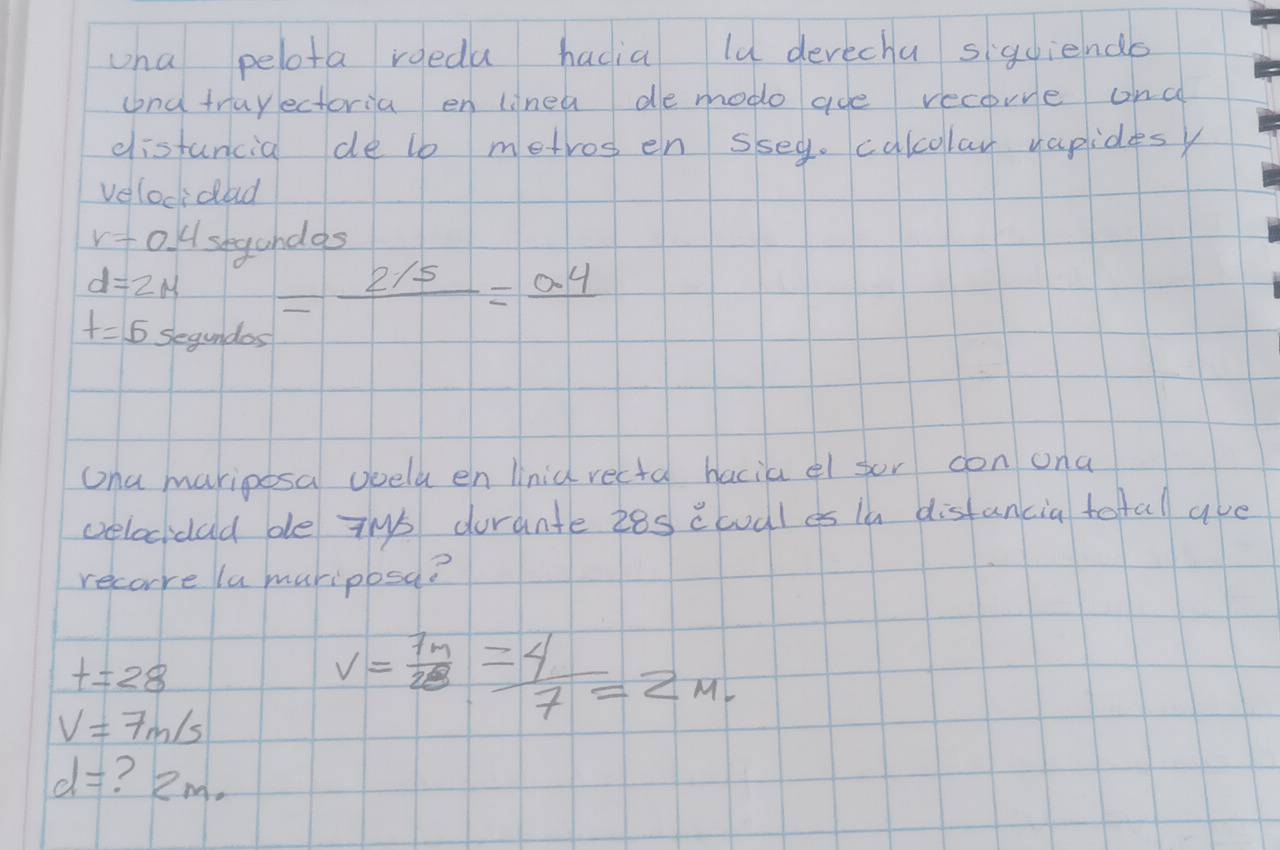 una pelota rueda hacia la derecha siguiendo
una trayectoria en linea de modo que recorre una
distancia de 10 metros en 5seg. calcular rapides y
velocidad
r=0.4 segundos
d=2M = 2/5 = 0.4
t=5 segundos
Una mariposa vuela en linia recta hacia el sur con una
velocidad de 7M/s durante 28s ¿cual es la distancia total que
recorre la mariposa?
t=28 V= 7m/28 =4/7 = 2 M.
V= 7m/s
d=? 2m.